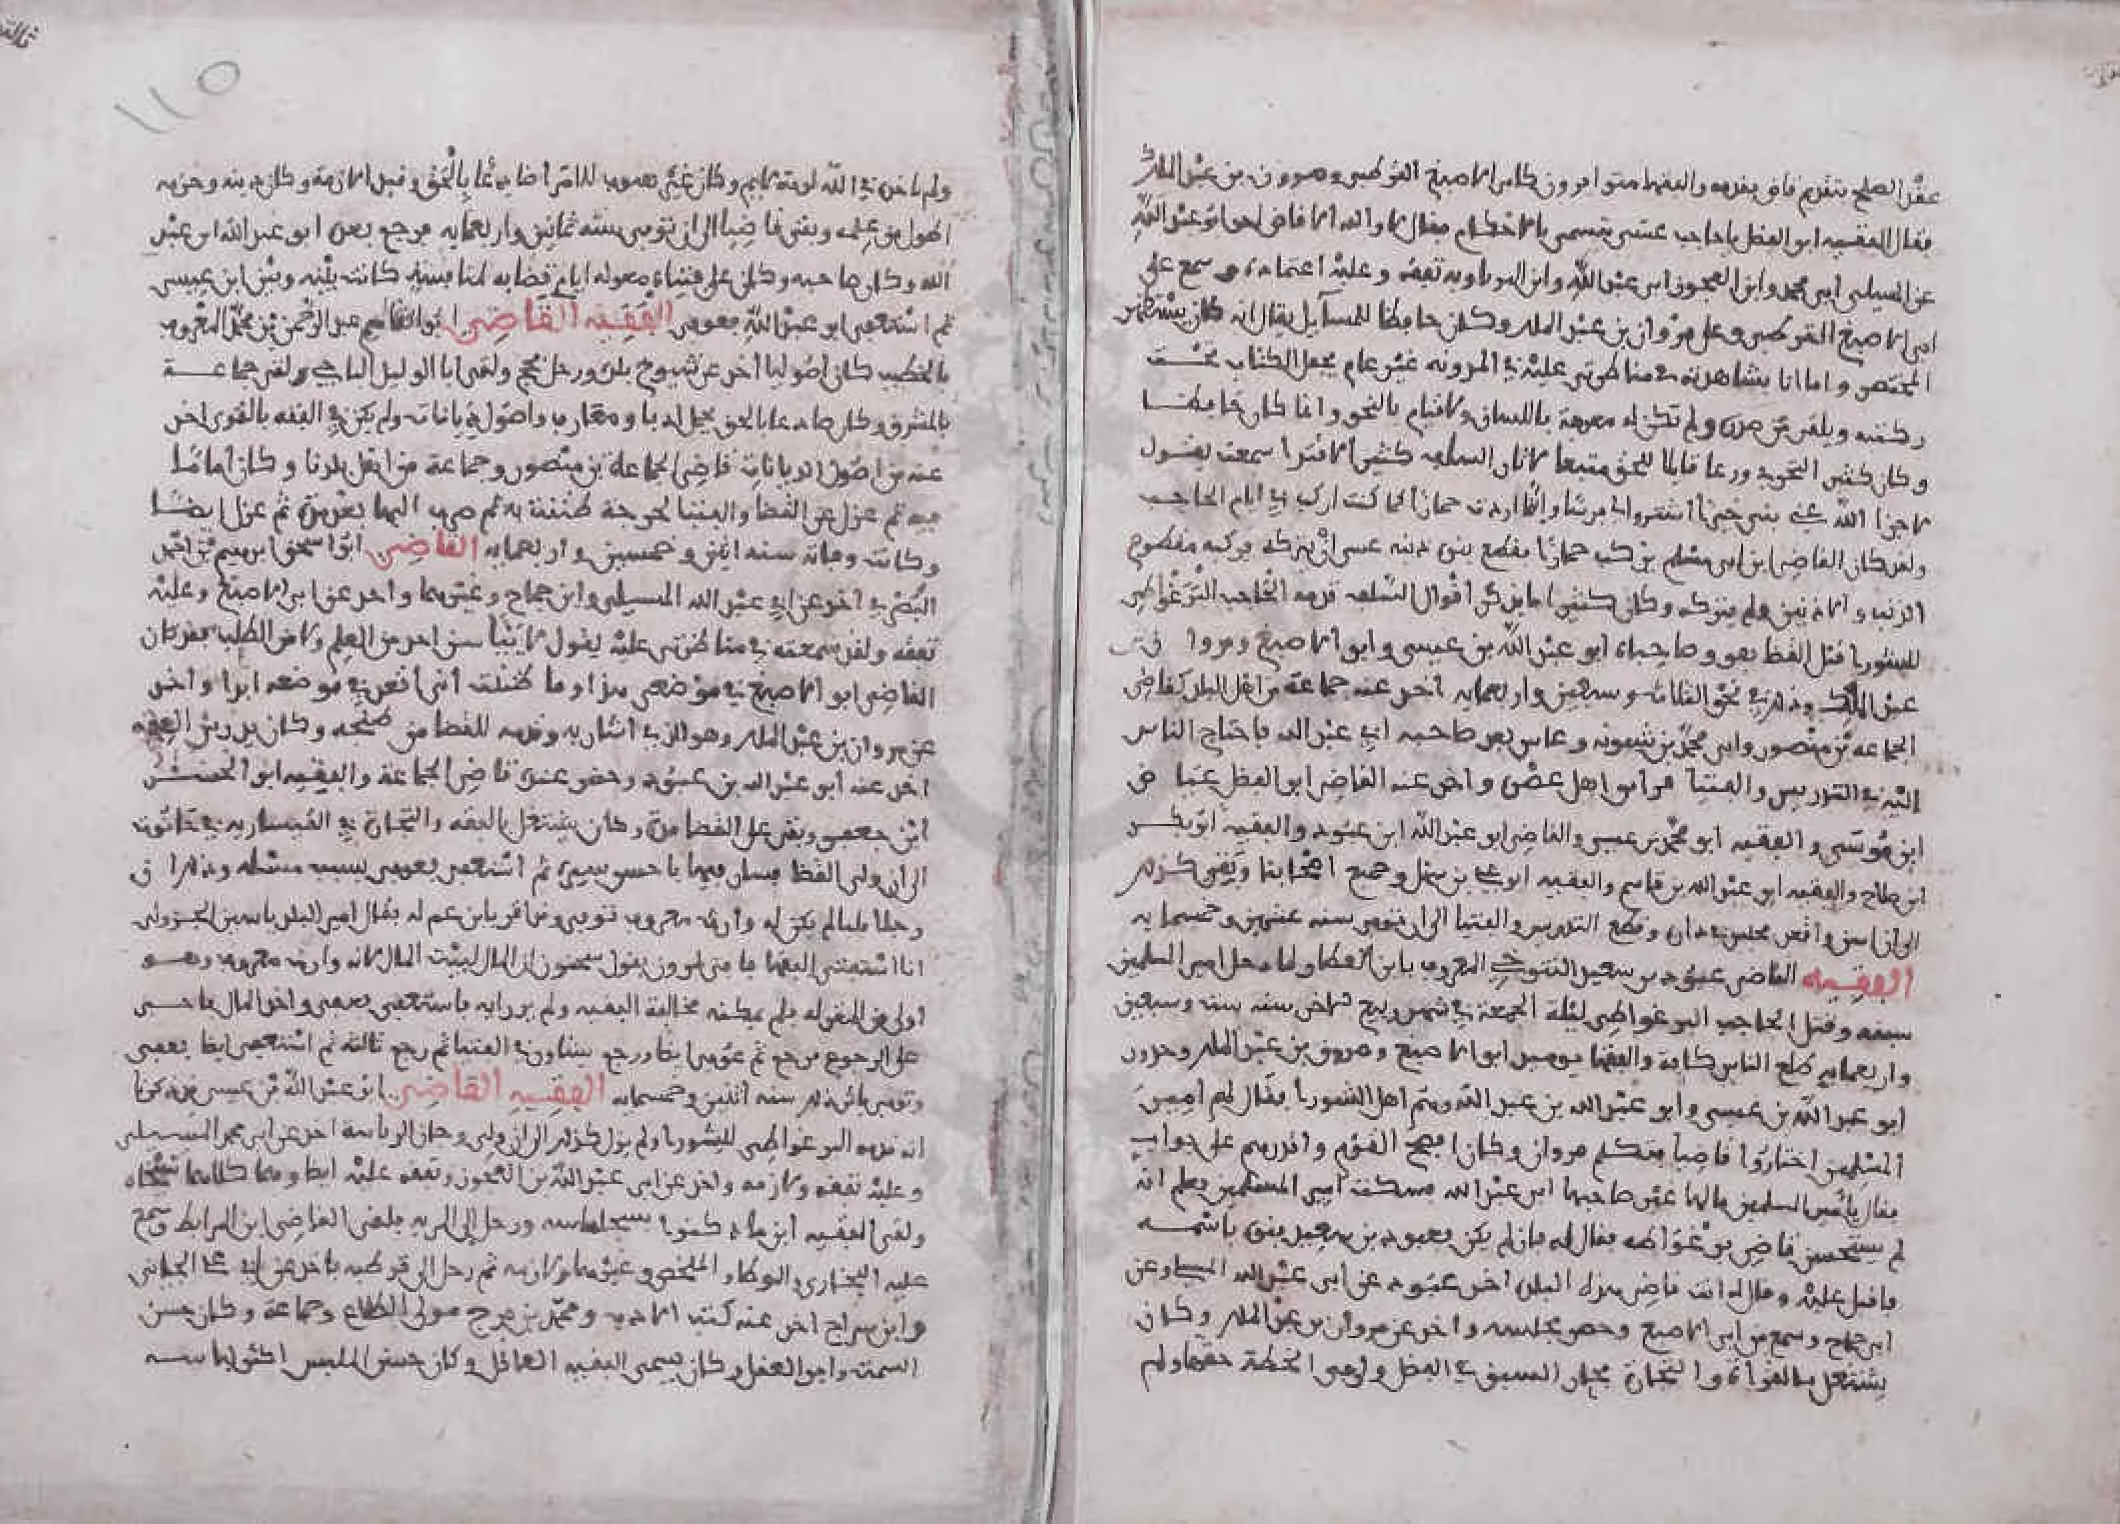 عقد الصلح بتقديم قاض يقدمه والفقهاء متوافرون كابن الاصبغ القرطبي ومروان بن عبد الملك
فقال الفقيه ابو الفضل يا حاجب عسى يتسمى بالاحكام فقال لا والله الا قاض اخو ابو عبد الله
عن المسيلي ابي محمد وابن العجوز ابي عبد الله وابن وبه تفقه وعليه اعتماده وسمع على
ابي الاصبغ القرطبي وعلى مروان بن عبد الملك وكان حافظا للمسائل يقال انه كان يستظهر
المختصر واما انا بشاهدته في مناظرتي عليه في المدونة غير عام يجعل الكتاب تحت
ركبته ويلقي من صدره ولم تكن له معرفة باللسان ولا قيام بالنحو وانما كان حافظا
وكان كثير التحري ورعا قائما للحق متبعا لاثار السلف كثير سمعته يقول
لا جزا الله عني بني خيرا اشتروا لي فرسا وانما اردت حمارا كما كنت اركب في ايام الحاجب
ولقد كان القاضي ابن ابي مسلم يركب حمارا فقطع بنوه ذنبه عسى ان يتركه فركبه مقطوع
الذنب والاذنين ولم يتركه وكان كثيرا ما يذكر اقوال السلف قدمه الحاجب البرغواطي
للشورى قبل القضا هو وصاحباه ابو عبد الله بن عيسى وابو الاصبغ ومروان بن
عبد الملك وذلك في نحو الثلاث وسبعين واربعمايه اخذ عنه جماعة من اهل البلد كقاضي
الجماعة بن منصور وابي محمد بن شبونه وعاش بعد صاحبه ابي عبد الله فاحتاج الناس
اليه في التدريس والفتيا فرأس اهل عصره واخذ عنه القاضي ابو الفضل عياض
ابن موسى والفقيه ابو محمد بن عيسى والقاضي ابو عبد الله ابن عبود والفقيه ابو بكر
ابن صالح والفقيه ابو عبد الله بن قاسم والفقيه ابو علي بن سهل وجميع اصحابنا وبقي كذلك
الى ان اسن واقعد بمجلس داره وقطع التدريس والفتيا الى ان توفي سنة عشرين وخمسمايه
الفقيه القاضي عبود بن سعيد التنوخي المعروف بابن العطار ولما دخل امير المسلمين
سبته وقتل الحاجب البرغواطي ليلة الجمعة في شهر ربيع الاخر سنة ست وسبعين
واربعمايه طلع الناس كافة والفقها يوميذ ابو الاصبغ ومروان بن عبد الملك وحزون
ابو عبد الله بن عيسى وابو عبد الله بن عبد الله وهم اهل الشورى فقال لهم امير
المسلمين اختاروا قاضيا فتكلم مروان وكان افصح القوم واقدرهم على جواب
فقال يا امير المسلمين مالها غير صاحبها ابي عبد الله فسكت امير المسلمين فعلم انه
لم يستحسن قاضي برغواطه فقال له فان لم يكن فعبود بن سعيد ينوه باسمه
فاقبل عليه وقال له انت قاضي هذه البلدة اخذ عبود عن ابي عبد الله المسيلي وعن
ابن جماح وسمع من ابي الاصبغ وحضر مجلسه واخذ عن مروان بن عبد الملك وكان
يشتغل بالقراءة والتجارة فجاز السبق في الفضل ووفى الخطة حقها ولم
١١٥
ولم ياخذه في الله لومة لايم وكان غير هيوب للامر اضا صدعا بالحق وقيل الازمة وكان دينه وحزمه
اطول من علمه وبقي قاضيا الى ان توفي سنة ثمانين واربعمايه فرجع بعده ابو عبد الله ابن عبد
الله وكان صاحبه وكان على فتياه معوله ايام قضايه لمنافسة كانت بينه وبين ابن عيسى
ثم استعفى ابو عبد الله فعوفي الفقيه القاضي ابو القاسم عبد الرحمن بن محمد المعروف
بالخطيب كان اصوليا اخذ عن شيوخ بلده ورحل فحج ولقي ابا الوليد الباجي ولقي جماعة
بالمشرق وكان صادعا بالحق يحمل ادبا ومعارف واصول ديانات ولم يكن في الفقه بالقوي اخذ
عنه من اصول الديانات قاضي الجماعة بن منصور وجماعة من اهل بلدنا وكان اماما
فيه ثم عزل عن القضا والفتيا لحوجة ظننت به ثم صرف اليها بعد مدة ثم عزل ايضا
وكانت وفاته سنة اثنين وخمسين واربعمايه القاضي ابو اسحق ابرهيم بن احمد
البصري اخذ عن ابي عبد الله المسيلي وابن جماح وغيرهما واخذ عن ابي الاصبغ وعليه
تفقه ولقد سمعته في مناظرتي عليه يقول لا يئس اسن احد من العلم ولا من الطلب فقد كان
القاضي ابو الاصبغ في موضعي هذا وما ظننت انني اقعد في موضعه ابدا واخذ
عن مروان بن عبد الملك وهو الذي اشار به وقدمه للقضا من وكان يدرس الفقه
اخذ عنه ابو عبد الله بن عبود وحضر عنده قاضي الجماعة والفقيه ابو الحسن
ابن جعفر وبقي على القضا مدة وكان يشتغل بالفقه والتجارة في القيسارية في حانوت
الى ان ولي القضا فسار فيها باحسن سيرة ثم استعفى فعوفي بسبب مسئلة وذلك ان
رجلا مليا لم يكن له وارث معروف توفي وقام قريب ابن عم له فقال امير البلد ياسين الجزولي
انا استفتي الفقها فامتى ابن يقول سحنون ان المال لبيت المال لانه وارث معروف وهو
اولى من المقر له فلم يمكنه مخالفة الفقيه ولم ير رايه فاستعفى فعفي واخذ المال فاحس
على الرجوع فرجع ثم عوفي ايضا ورجع يشاور في الفتيا ثم رجع ثالثة ثم استعفى ايضا فعفي
وتوفي باثر ذلك سنة اثنين وخمسمايه الفقيه القاضي ابو عبد الله بن عيسى قد ذكرنا
انه قدمه البرغواطي للشورى ولم يزل كذلك الى ان ولي وحاز الرياسة اخذ عن ابي محمد المسيلي
وعليه تفقه ولازمه واخذ عن ابي عبد الله بن العجوز وتفقه عليه ايضا وهما كلاهما شيخاه
ولقي الفقيه ابن بسجلماسه ورحل الى المرية فلقي القاضي ابن المرابط وسمع
عليه البخاري والموطا والملخص وغيرها ولازمه ثم رحل الى قرطبه فاخذ عن ابي علي الجياني
وابن سراج اخذ عنه كتب الادب ومحمد بن فرج مولى الطلاع وجماعة وكان حسن
السمت وافر العقل وكان يسمى الفقيه العاقل وكان حسن الملبس اكثر لباسه